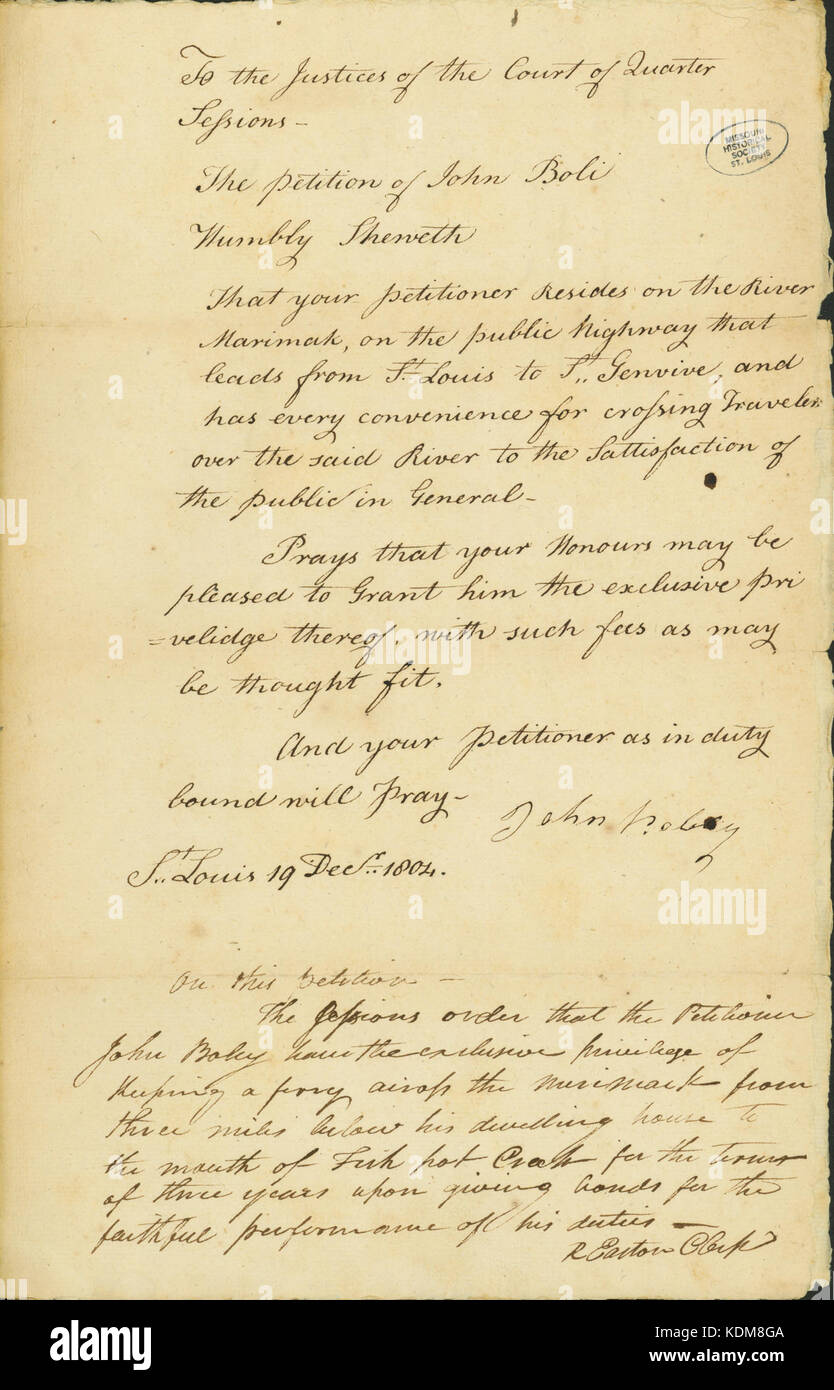 To the Justices of the Court of Quarter
Sessions –
MISSOURI
HISTORICAL
SOCIETY
ST. LOUIS
The petition of John Boli
Humbly Sheweth
That your petitioner Resides on the River
Marimak, on the public highway that
leads from St. Louis to St. Genvive, and
has every convenience for crossing Traveler
over the said River to the Sattisfaction of
the public in General –
Prays that your Honours may be
pleased to Grant him the exclusive pri
=velidge thereof, with such fees as may
be thought fit.
And your Petitioner as in duty
bound will Pray –
John Boley
St. Louis 19 Decr. 1804.
On this petition –
The Sessions order that the Petitioner
John Boley have the exclusive privilege of
Keeping a ferry across the Merimack from
three miles below his dwelling house to
the mouth of Fish pot Creek for the term
of three years upon giving bonds for the
faithful performance of his duties –
R Easton Clerk
alamy
alamy
alamy
alamy
Image ID: KDM8GA
www.alamy.com